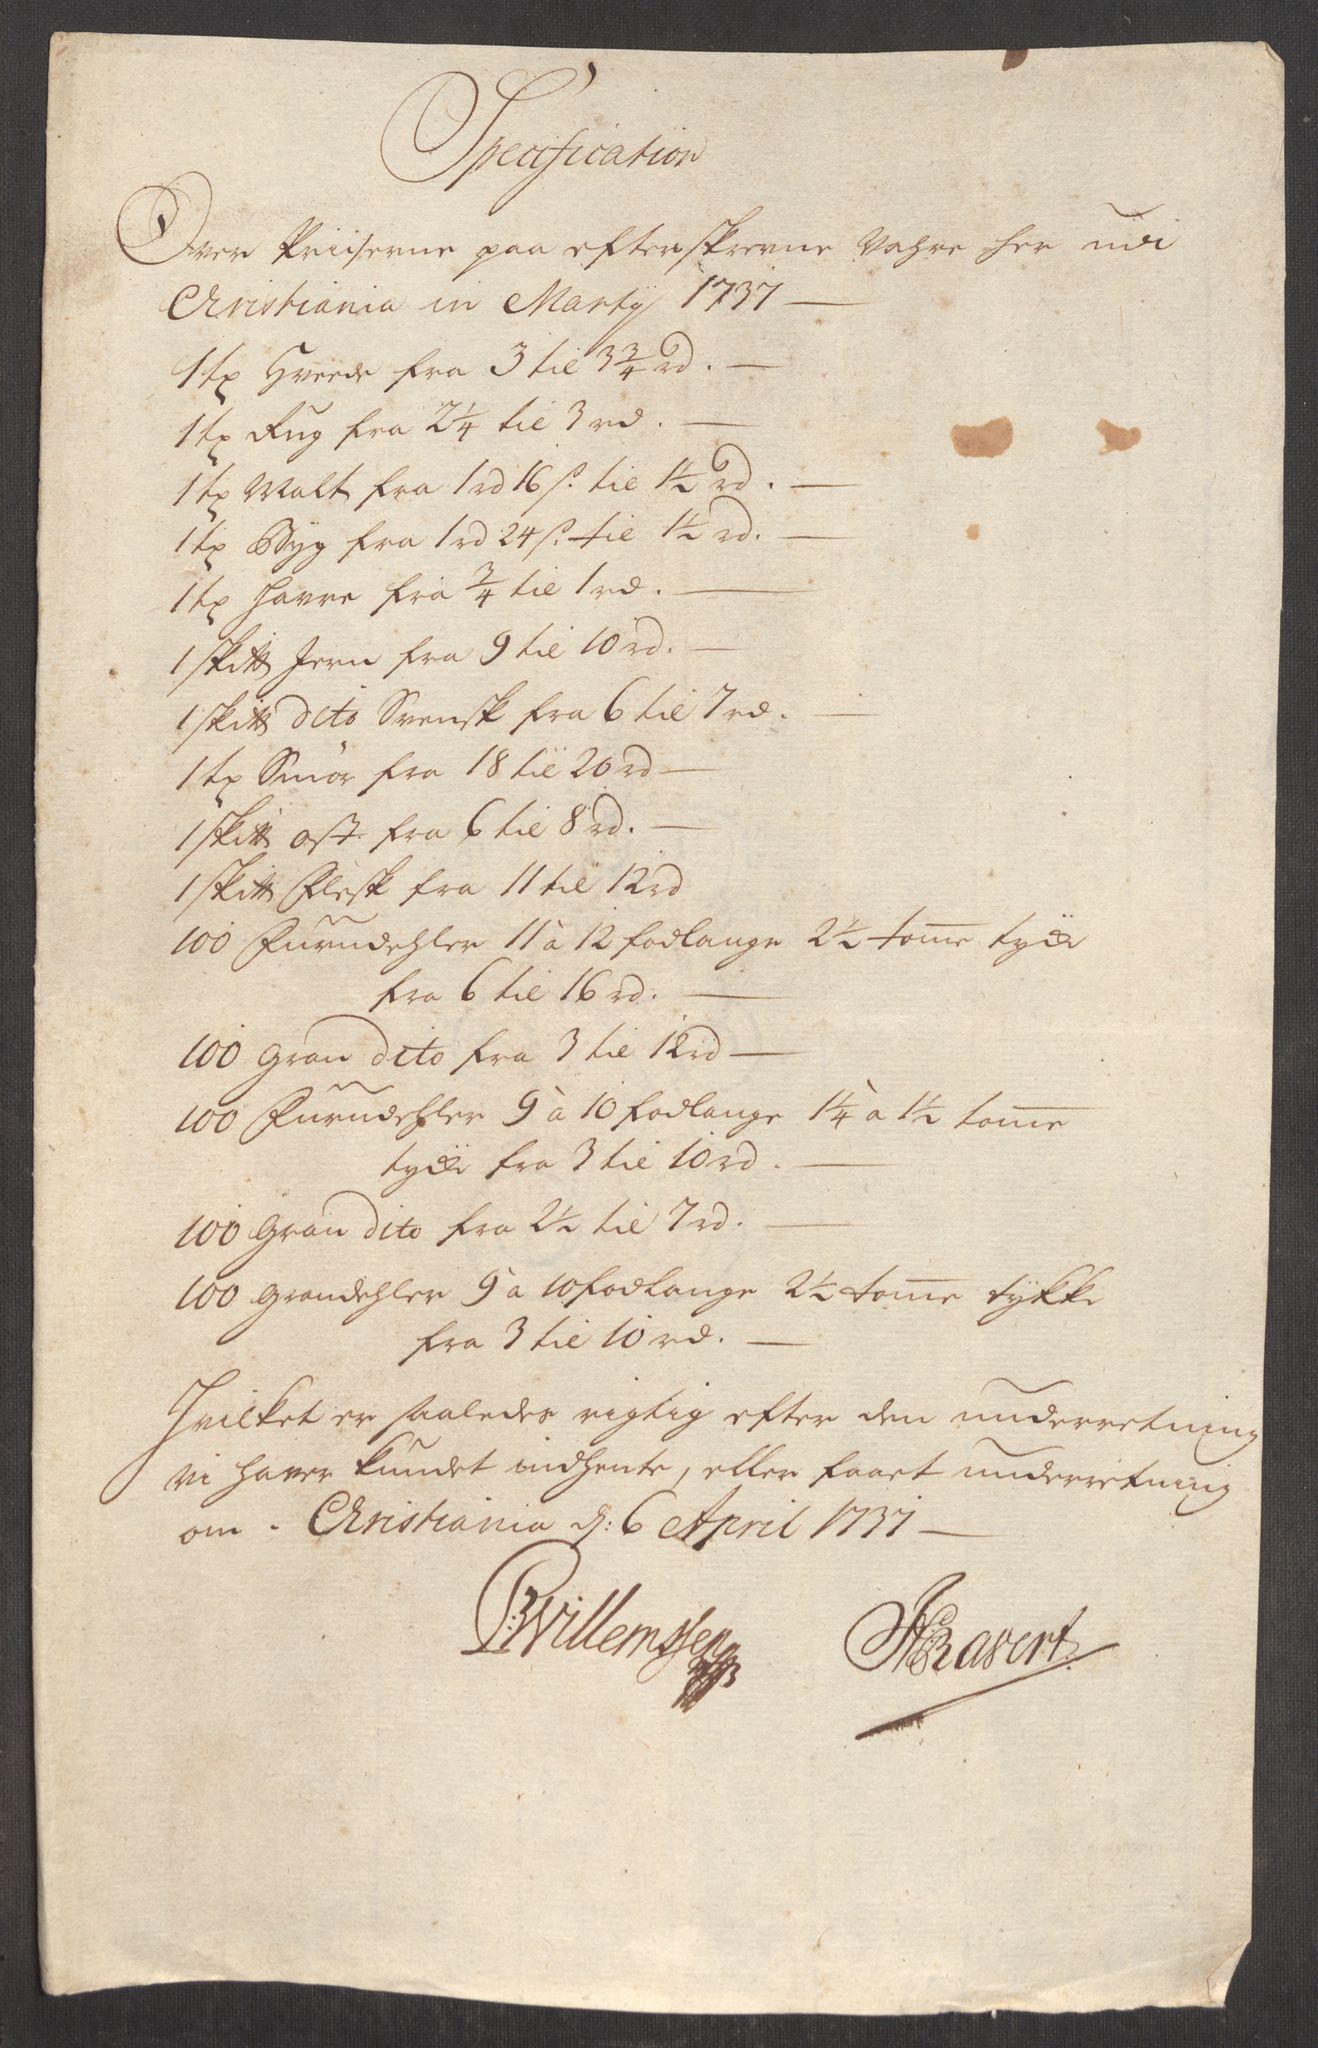 Specification
Over Priiserne paa efterskrevne Vahre her udi
Christiania in Martÿ 1737 —
1 tp Hveede fra 3 til 3 3/4 rd. —
1 tp Rug fra 2 1/4 til 3 rd. —
1 tp Malt fra 1 rd 16 s. til 1 1/2 rd. —
1 tp Byg fra 1 rd 24 s. til 1 1/2 rd. —
1 tp Havre fra 3/4 til 1 rd. —
1 skitt Jern fra 9 til 10 rd. —
1 skitt dito Svensk fra 6 til 7 rd. —
1 tp Smör fra 18 til 20 rd —
1 skitt ost fra 6 til 8 rd. —
1 skitt Flesk fra 11 til 12 rd
100 Furudehler 11 à 12 fodlange 2 1/2 tome tyke
fra 6 til 16 rd. —
100 Gran dito fra 3 til 12 rd —
100 Furudehler 9 à 10 fodlange 1 1/4 à 1 1/2 tome
tyke fra 3 til 10 rd. —
100 Gran dito fra 2 1/2 til 7 rd. —
100 Grandehler 9 à 10 fodlange 2 1/2 tome tykke
fra 3 til 10 rd. —
Hvilket er saaledes rigtig efter den underretning
vi haver kundet indhente, eller faaet underretning
om. Christiania d: 6 April 1737 —
P: Willemssen
Ravert